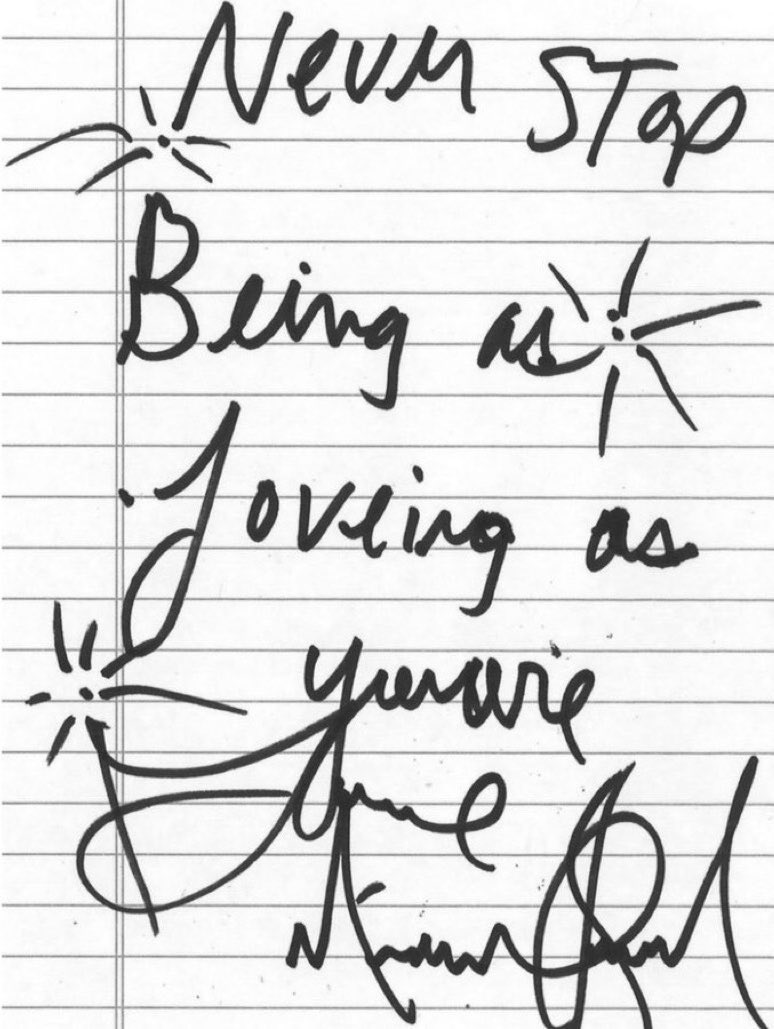 Never STop
Being as
Loveing as
you are